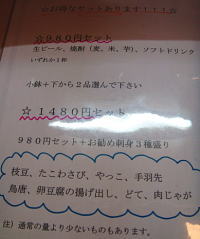 ☆お得なセットあります！！！☆
☆９８０円セット
生ビール、焼酎（麦、米、芋）、ソフトドリンク
いずれか１杯
小鉢＋下から２品選んで下さい
☆１４８０円セット
９８０円セット＋お勧め刺身３種盛り
枝豆、たこわさび、やっこ、手羽先
鳥唐、卵豆腐の揚げ出し、どて、肉じゃが
注）通常の量より少ないものもあります。